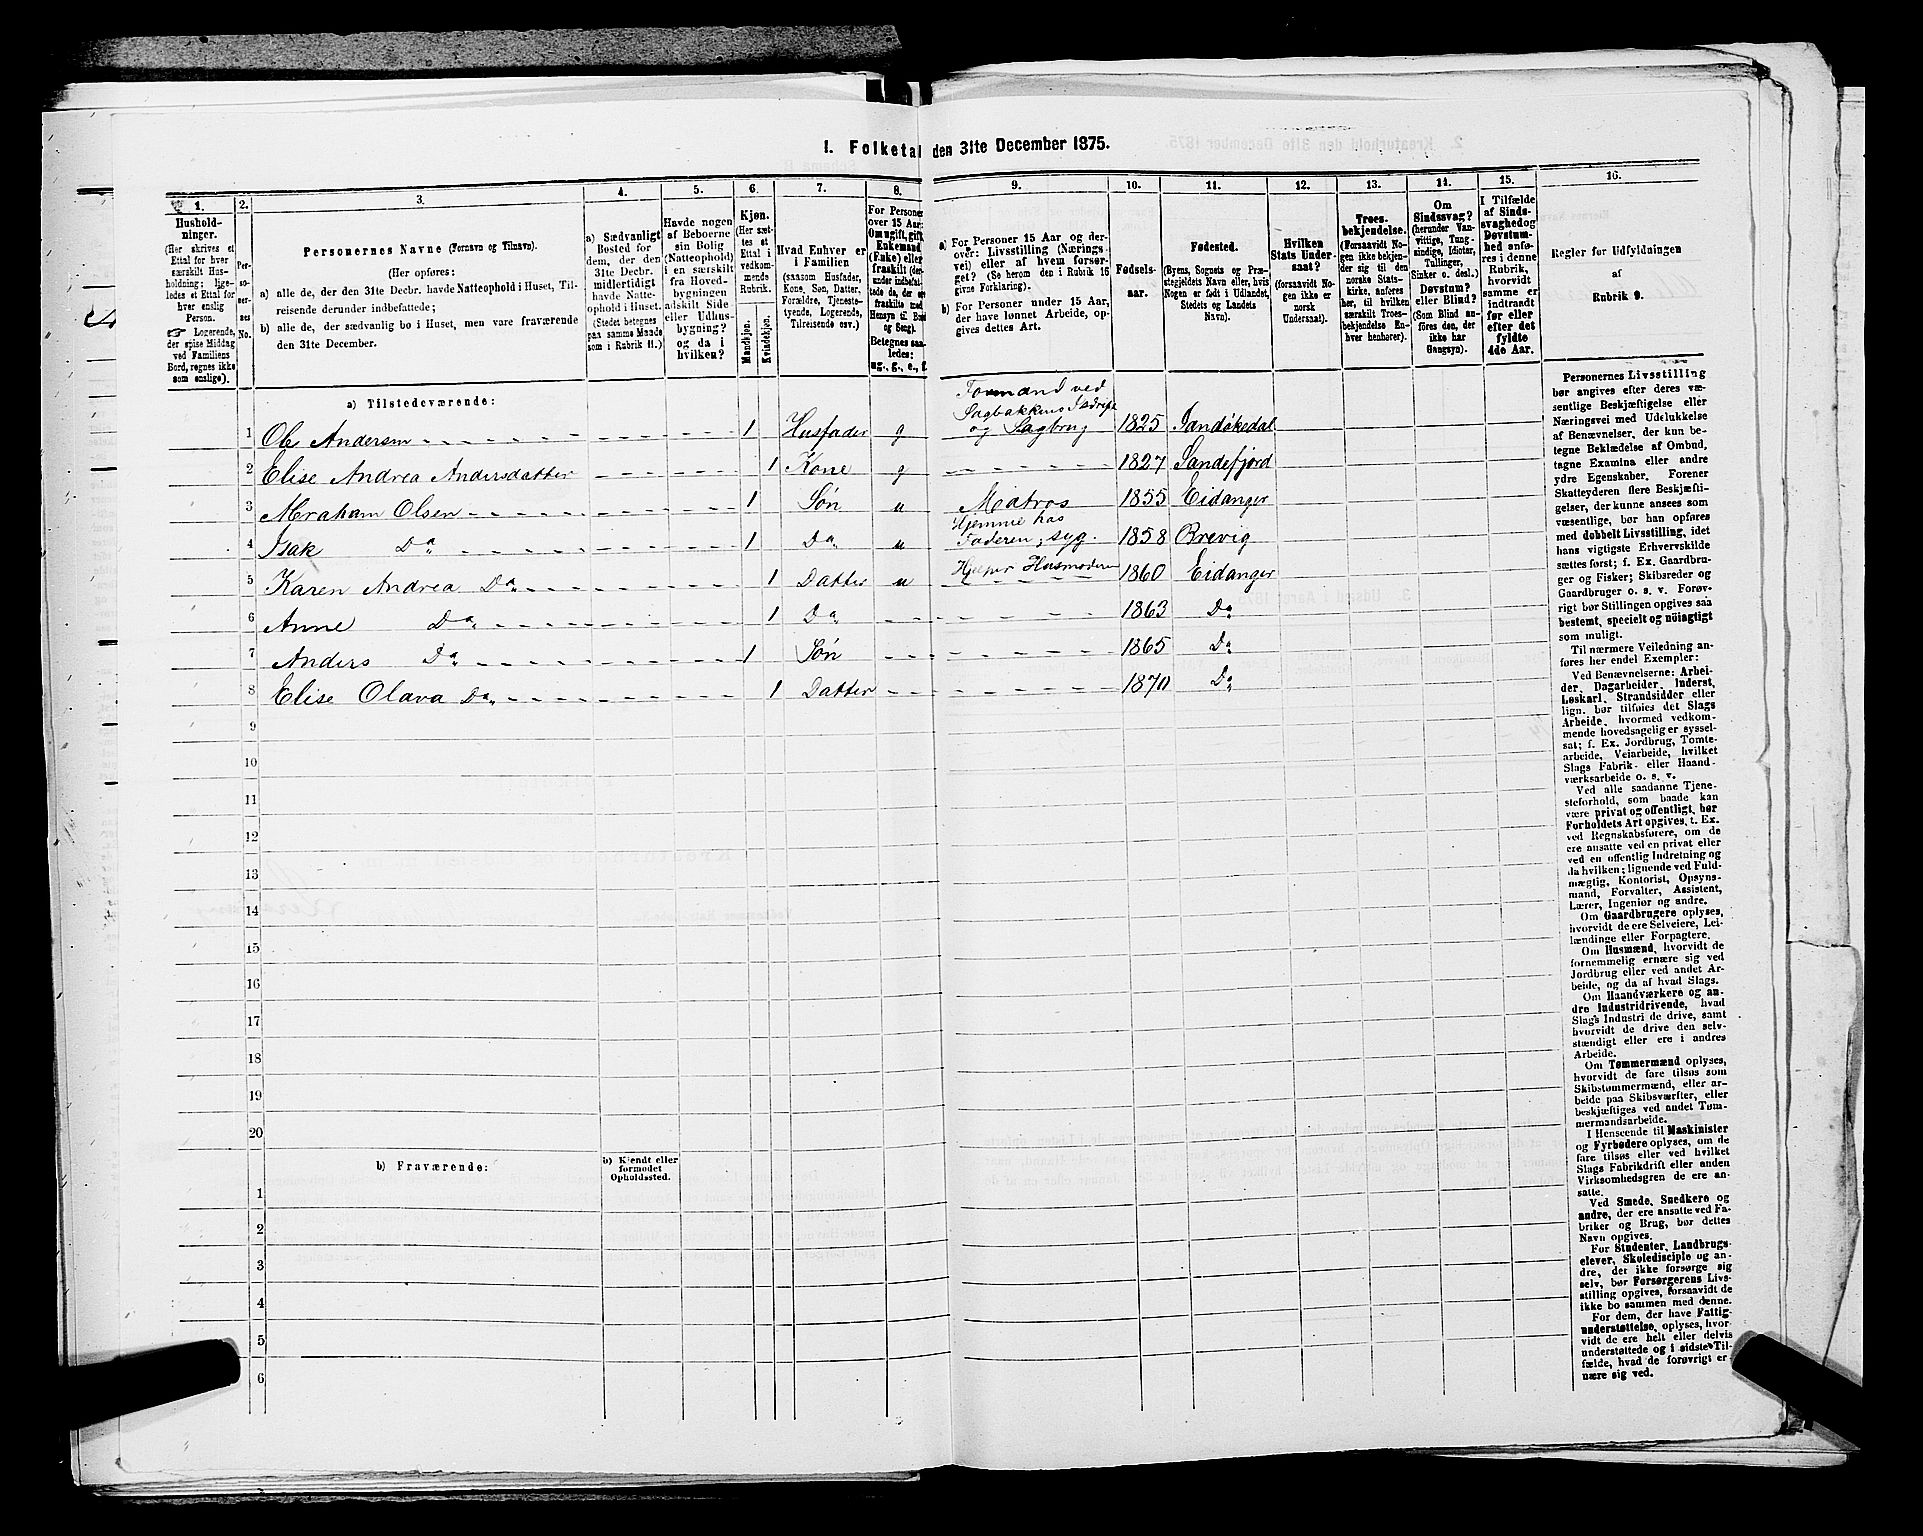 1. Folketal den 31te December 1875.
1.
2.
3.
4.
5.
6.
7.
8.
9.
10.
11.
12.
13.
14.
15.
16.
Hushold-
ninger.
(Her skrives et
Ettal for hver
særskilt Hus-
holdning; lige-
ledes et Ettal for
hver enslig
Person.
☞ Logerende,
der spise Middag
ved Familiens
Bord, regnes ikke
som enslige).
Per-
so-
ner-
nes
No.
Personernes Navne (Fornavn og Tilnavn).
(Her opføres:
a) alle de, der den 31te Decbr. havde Natteophold i Huset, Til-
reisende derunder indbefattede;
b) alle de, der sædvanlig bo i Huset, men vare fraværende
den 31te December.
a) Sædvanligt
Bosted for
dem, der den
31te Decbr.
midlertidigt
havde Natte-
ophold i Huset.
(Stedet betegnes
paa samme Maade
som i Rubrik 11.)
Havde nogen
af Beboerne
sin Bolig
(Natteophold)
i en særskilt
fra Hoved-
bygningen
adskilt Side
eller Udhus-
bygning?
og da i
hvilken?
Kjøn.
(Her sæt-
tes et
Ettal i
vedkom-
mende
Rubrik.
Mandkjøn.
Kvindekjøn.
Hvad Enhver er
i Familien
(saasom Husfader,
Kone, Søn, Datter,
Forældre, Tjeneste-
tyende, Logerende,
Tilreisende osv.)
For Personer
over 15 Aar:
Om ugift, gift,
Enkemand
(Enke) eller
fraskilt (der-
under indbefat-
tede de, der ere
fraskilte med
Hensyn til Bord
og Seng).
Betegnes saa-
ledes:
ug., g., e., f.
a) For Personer 15 Aar og der-
over: Livsstilling (Nærings-
vei) eller af hvem forsør-
get? (Se herom den i Rubrik 16
givne Forklaring).
b) For Personer under 15 Aar,
der have lønnet Arbeide, op-
gives dettes Art.
Fødsels-
aar.
Fødested.
(Byens, Sognets og Præ-
stegjeldets Navn eller, hvis
Nogen er født i Udlandet,
Stedets og Landets
Navn).
Hvilken
Stats Under-
saat?
(forsaavidt No-
gen ikke er
norsk
Undersaat).
Troes-
bekjendelse.
(Forsaavidt No-
gen ikke bekjen-
der sig til den
norske Stats-
kirke, anføres
her, til hvilken
særskilt Troes-
bekjendelse En-
hver henhører).
Om
Sindssvag?
(herunder Van-
vittige, Tung-
sindige, Idioter,
Tullinger,
Sinker o. desl.)
Døvstum?
eller Blind?
(Som Blind an-
føres den, der
ikke har
Gangsyn).
I Tilfælde
af Sinds-
svaghed og
Døvstum-
hed anfø-
res i denne
Rubrik,
hvorvidt
samme er
indtraadt
før eller
efter det
fyldte
4de Aar.
Regler for Udfyldningen
af
Rubrik 9.
a) Tilstedeværende:
Formand ved
Sagbakkens Isdrift
1 Ole Andersen 1 Husfader g og Sagbrug 1825 Sandøkedal
2 Elise Andrea Andersdatter 1 Kone g 1827 Sandefjord
3 Abraham Olsen 1 Søn u Matros 1855 Eidanger
Hjemme hos
4 Isak Do 1 Do u Faderen, syg. 1858 Brevig
5 Karen Andrea Do 1 Datter u Hjelper Husmoderen 1860 Eidanger
6 Anne Do 1 Do 1863 Do
7 Anders Do 1 Søn 1865 Do
8 Elise Olava Do 1 Datter 1870 Do
9
10
11
12
13
14
15
16
17
18
19
20
b) Fraværende:
b) Kjendt eller
formodet
Opholdssted.
1
2
3
4
5
6
Personernes Livsstilling
bør angives efter deres væ-
sentlige Beskjæftigelse eller
Næringsvei med Udelukkelse
af Benævnelser, der kun be-
tegne Beklædelse af Ombud,
tagne Examina eller andre
ydre Egenskaber. Forener
Skatteyderen flere Beskjæfti-
gelser, der kunne ansees som
væsentlige, bør han opføres
med dobbelt Livsstilling, idet
hans vigtigste Erhvervskilde
sættes først; f. Ex. Gaardbru-
ger og Fisker; Skibsreder og
Gaardbruger o. s. v. Forøv-
rigt bør Stillingen opgives saa
bestemt, specielt og nöiagtigt
som muligt.
Til nærmere Veiledning an-
føres her endel Exempler:
Ved Benævnelserne: Arbei-
der, Dagarbeider, Inderst,
Løskarl, Strandsidder eller
lign. bør tilføies det Slags
Arbeide, hvormed vedkom-
mende hovedsagelig er syssel-
sat; f. Ex. Jordbrug, Tomte-
arbeide, Veiarbeide, hvilket
Slags Fabrik- eller Haand-
værksarbeide o. s. v.
Ved alle saadanne Tjene-
steforhold, som baade kan
være privat og offentligt, bør
Forholdets Art opgives, t. Ex.
ved Regnskabsførere, om de
ere ansatte ved en privat eller
ved en offentlig Indretning og
da hvilken; lignende ved Fuld-
mægtig, Kontorist, Opsyns-
mand, Forvalter, Assistent,
Lærer, Ingeniør og andre.
Om Gaardbrugere oplyses,
hvorvidt de ere Selveiere, Lei-
lændinge eller Forpagtere.
Om Husmænd, hvorvidt de
fornemmelig ernære sig ved
Jordbrug eller ved andet Ar-
beide, og da af hvad Slags.
Om Haandværkere og an-
dre Industridrivende, hvad
Slags Industri de drive, samt
hvorvidt de drive den selv-
stændigt eller ere i andres
Arbeide.
Om Tømmermænd oplyses,
hvorvidt de fare tilsøs som
Skibstømmermænd, eller ar-
beide paa Skibsværfter, eller
beskjæftiges ved andet Tøm-
mermandsarbeide.
I Henseende til Maskinister
og Fyrbødere oplyses, om de
fare tilsøs eller ved hvilket
Slags Fabrikdrift eller anden
Virksomhedsgren de ere an-
satte.
Ved Smede, Snedkere og
andre, der ere ansatte ved Fa-
briker og Brug, bør dettes
Navn opgives.
For Studenter, Landbrugs-
elever, Skoledisciple og an-
dre, det ikke forsørge sig
selv, bør Forsørgerens Livs-
stilling opgives, forsaavidt de
ikke bo sammen med denne.
For dem, der have Fattig-
understøttelse, oplyses, hvor-
vidt de ere helt eller delvis
understøttede og i sidste Til-
fælde, hvad de forøvrigt er-
nære sig ved.